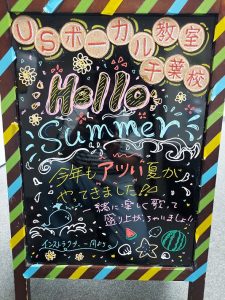 USボーカル教室
千葉校
Hello
Summer
今年もアツい夏が
やってきました♪
一緒に楽しく歌って
盛り上がっちゃいましょ!!
インストラクター一同より